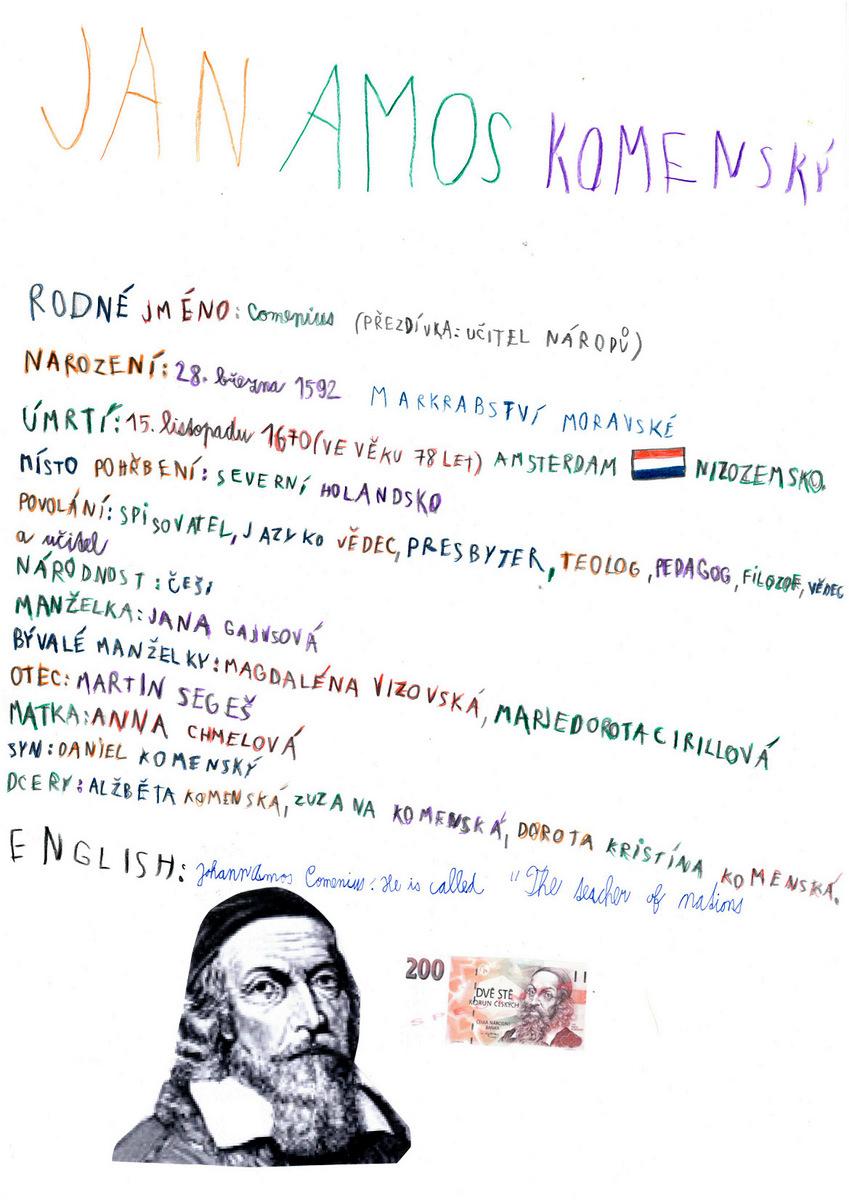 JAN AMOS KOMENSKÝ
RODNÉ JMÉNO: Comenius (PŘEZDÍVKA: UČITEL NÁRODŮ)
NAROZENÍ: 28. března 1592 MARKRABSTVÍ MORAVSKÉ
ÚMRTÍ: 15. listopadu 1670 (VE VĚKU 78 LET) AMSTERDAM NIZOZEMSKO.
MÍSTO POHŘBENÍ: SEVERNÍ HOLANDSKO
POVOLÁNÍ: SPISOVATEL, JAZYKO VĚDEC, PRESBYTER, TEOLOG, PEDAGOG, FILOZOF, VĚDEC
a učitel
NÁRODNOST: ČEŠI
MANŽELKA: JANA GAJUSOVÁ
BÝVALÉ MANŽELKY: MAGDALÉNA VIZOVSKÁ, MARIE DOROTA CIRILLOVÁ
OTEC: MARTIN SEGEŠ
MATKA: ANNA CHMELOVÁ
SYN: DANIEL KOMENSKÝ
DCERY: ALŽBĚTA KOMENSKÁ, ZUZANA KOMENSKÁ, DOROTA KRISTÍNA KOMENSKÁ.
ENGLISH: Johann Amos Comenius. He is called "The teacher of nations
200
DVĚ STĚ
KORUN ČESKÝCH
ČESKÁ NÁRODNÍ
BANKA